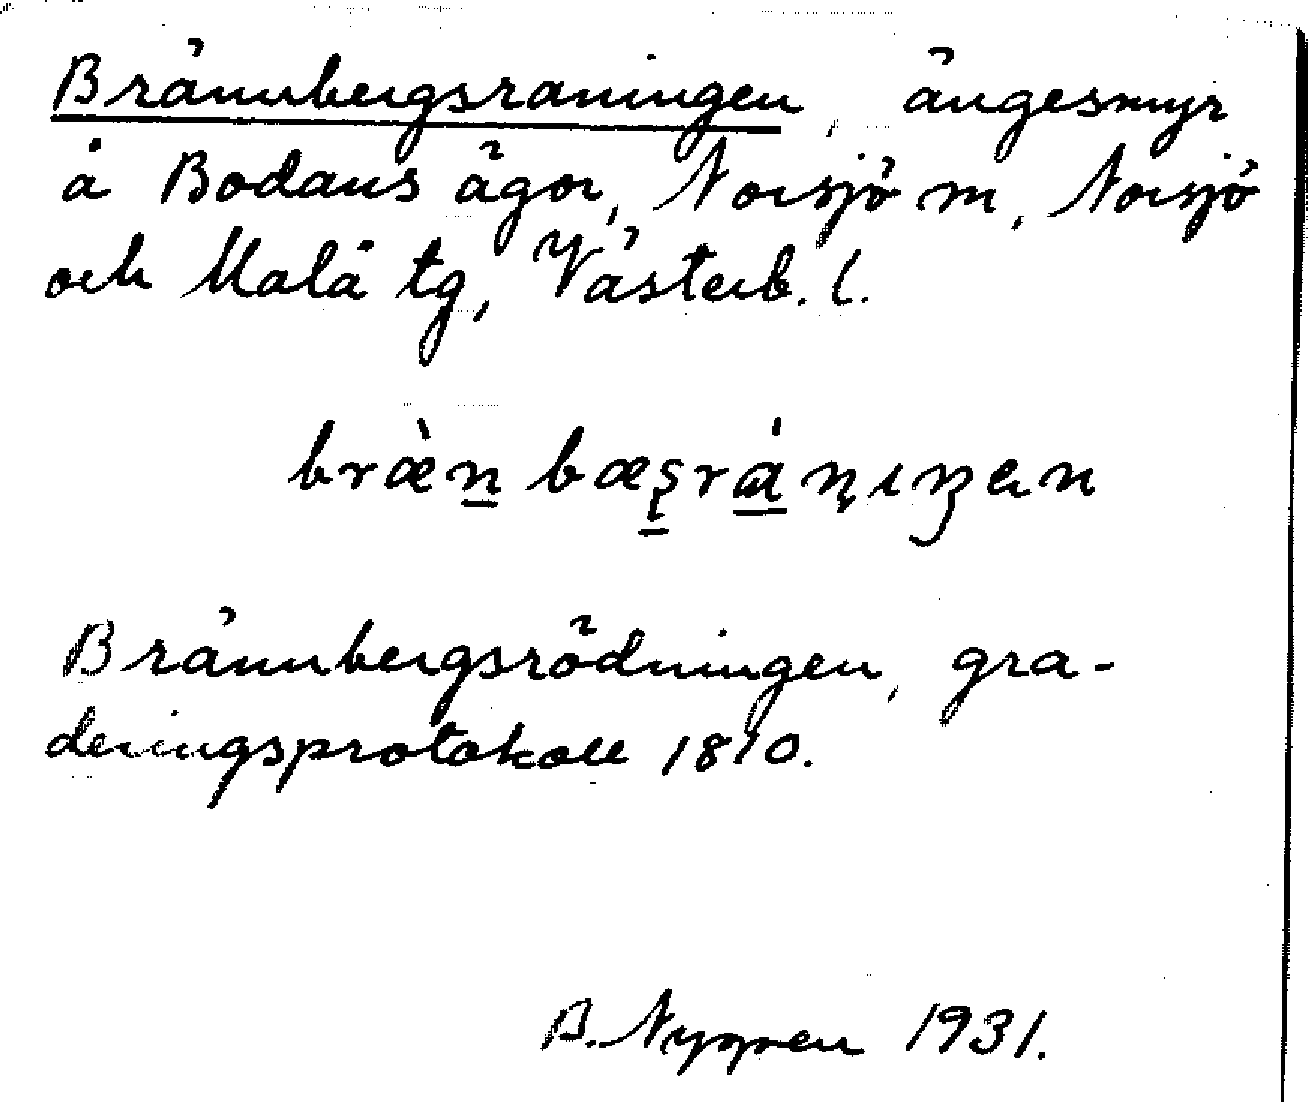 Brännbergsraningen, ängesmyr
å Bodans ägor, Norsjö m, Norsjö
och Malå tg, Västerb. l.
Brännbergsrödningen, gra-
deringsprotokoll 1810.
B. Nygren 1931.